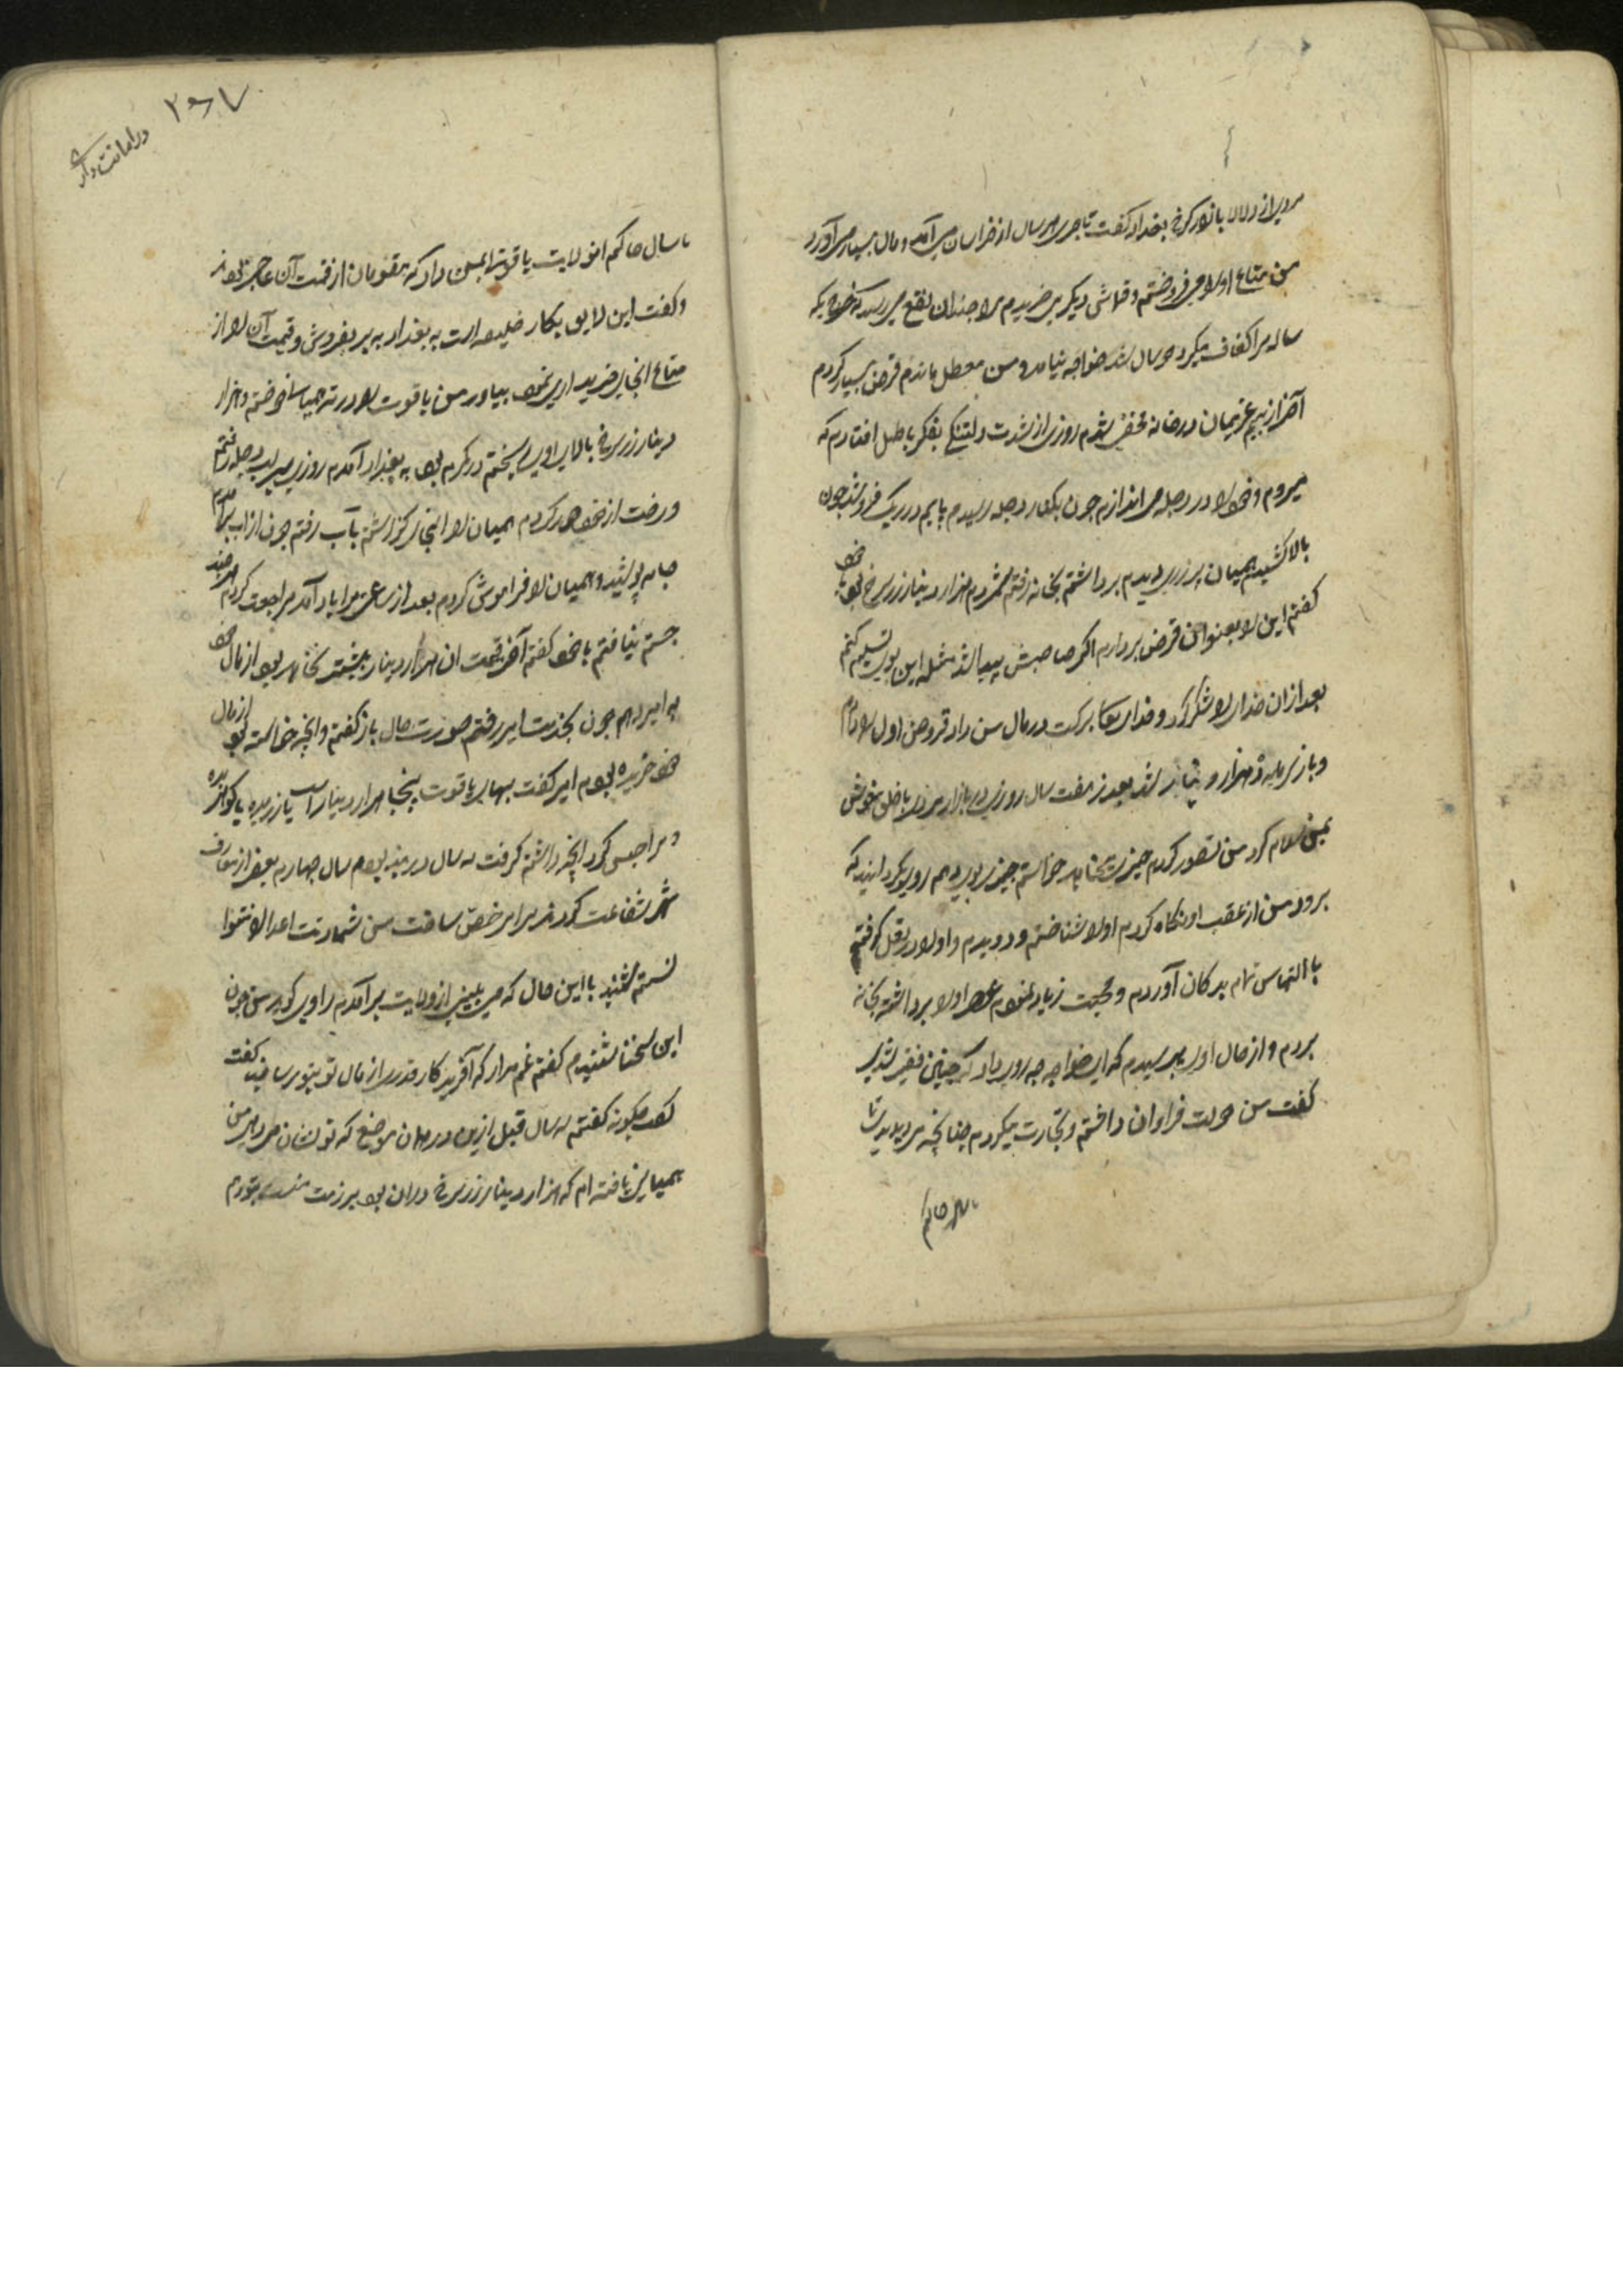 مردی از دلالا بانور کرخ بغداد گفت تاجری هر سال از خراسان می آمد و مال بسیار می آورد
من متاع او را می فروختم و قماش دیگر می خریدم مرا چندان نفع می رسید که خرج یک
ساله مرا کفاف میکرد دو سال شد خواجه نیامد و من معطل ماندم قرض بسیار کردم
آخر از بیم غریمان در خانه مخفی شدم روزی از شدت دلتنگی بفکر باطل افتادم که
میروم و خود را در دجله می اندازم چون بکنار دجله رسیدم پایم در ریگ فرو شد چون
بالا کشیدم همیان پر زری دیدم برداشتم بخانه رفتم شمردم هزار دینار زر سرخ بود با خود
گفتم این را بعنوان قرض بردارم اگر صاحبش پیدا شد مثل این بوی تسلیم کنم
بعد از ان خدا را شکر کرد و خدای تعا برکت در مال من داد قروض اول را دادم
و باز سرمایه دو هزار دینار شد بعد از هفت سال روزی در بازار مردی با خلق خویش
بمن سلام کرد من تصور کردم چیزی میخواهد خواستم چیزی بوی دهم روی بگردانید که
برود من از عقب او نگاه کردم او را شناختم و دویدم و او را در بغل گرفتم
با التماس تمام بدکان آوردم و محبت زیاد نمودم عصر او را برداشته بخانه
بردم و از حال اوی پرسیدم که ای خواجه چه روی داد که چنین فقیر شدی
گفت من دولت فراوان داشتم و تجارت میکردم چنانچه می دیدید تا
تا سال حاکم
تا سال حاکم انولایت یاقوتی بمن داد که مقومان از قیمت آن عاجز بودند
و گفت این لایق بکار خلیفه است به بغداد به بر بفروش و قیمت آن را از
متاع انجا خریداری نموده بیاور من یاقوت را در ته همیان دوختم و هزار
دینار زر سرخ بالای اوی ریختم در کمرم بود به بغداد آمدم روزی بر لب دجله رفتم
و رخت از خود دور کردم همیان را انجا گذارشتم بآب رفتم چون از اب برآمدم
جامه پوشید و همیان را فراموش کردم بعد از ساعتی مرا یاد آمد مراجعت کردم هر چند
جستم نیافتم با خود گفتم آخر قیمت ان هزار دینار بیشتر نخواهد بود از مال خود
به امیر دهم چون بخدمت امیر رفتم صورت حال باز گفتم و انچه خواسته بود از مال
خود خریده بودم امیر گفت بهای یاقوت پنجاه هزار دینار است یا زر بده یا گوهر بده
و مرا حبس کرد انچه داشتم گرفت سه سال در بند بودم سال چهارم بعضی از معارف
شهر شفاعت کردند مرا مرخص ساخت من شماتت اعدا را نتوا
نستم شنید با این حال که می بینی از ولایت برآمدم راوی گوید من چون
این سخنا شنیدم گفتم غم مدار که آفریدکار قدری از مال تو بتو رسانید گفت
چگونه گفتم سه سال قبل ازین در همان موضع که تو نشان میدهی من
همیانی یافته ام که هزار دینار زر سرخ دران بود بر ذمت
۲۶۷
در امانت داری